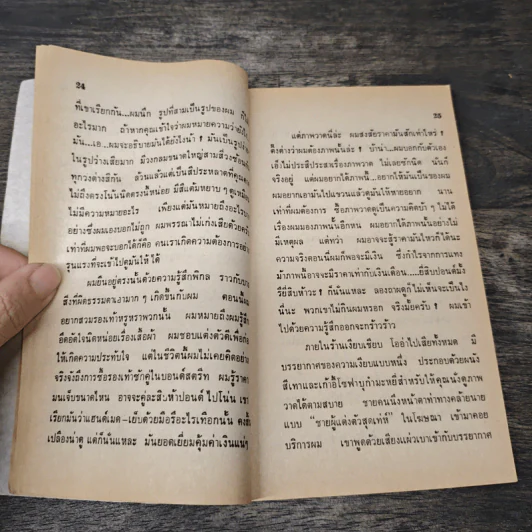 24
ที่เขาเรียกกัน...ผมนึก รูปที่สามเป็นรูปของผม
อะไรมาก ถ้าหากคุณเข้าใจว่าผมหมายความว่า
มัน...เอ...ผมจะอธิบายมันได้ยังไงนำ ! มันเป็นรูป
ในรูปร่างเสียมาก มีวงกลมขนาดใหญ่สามสี่วงซ้อน
ทุกวงต่างสีกัน ล้วนแต่เป็นสีประหลาดที่คุณ
ไม่ถึงตรงโน้นนิดตรงนี้หน่อย มีสีแต้มหยาบ ๆ ดูเหมือน
ไม่มีความหมายอะไร เพียงแต่มันหมายถึงอะไร
อย่างซึ่งผมเองบอกไม่ถูก ผมพรรณาไม่เก่งเสียด้วย
เท่าที่ผมพอจะบอกได้ก็คือ คนเราเกิดความต้องการอย่าง
รุนแรงที่จะเข้าไปดูมันให้ ได้
ผมยืนอยู่ตรงนั้นด้วยความรู้สึกพิกล ราวกับ
สิ่งที่ผิดธรรมดาเอามาก ๆ เกิดขึ้นกับผม ตอนนั้น
อยากสวมรองเท้าหรูหราพวกนั้น ผมหมายถึงผม
อีดอัดใจนิดหน่อยเรื่องเสื้อผ้า ผมชอบแต่งตัวดีเพื่อ
ให้เกิดความประทับใจ แต่ในชีวิตนี้ผมไม่เคยคิดอย่าง
จริงจังถึงการซื้อรองเท้าซักคู่ในบอนด์สตรีท ผมรู้ราคา
มันเจ็บขนาดไหน อาจจะคู่ละสิบห้าปอนด์ ไปโน่น
เรียกมันว่าแฮนด์เมด-เย็บด้วยมือรืออะไรเทือกนั้น
เปลืองน่าดู แต่ก็นั่นแหละ มันยอดเยี่ยมคุ้มค่าเงินแน่ๆ
25
แต่ภาพวาดนี่ล่ะ ผมสงสัยราคามันสักเท่าไหร่ !
ตั้งต่างว่าผมต้องภาพนั้นล่ะ ! บ้าน่า...ผมบอกกับตัวเอง
เอ็งไม่ประสีประสาเรื่องภาพวาด ไม่เลยซักนิด นั่นก็
จริงอยู่ แต่ผมอยากได้ภาพนี้...อยากให้มันเป็นของผม
ผมอยากเอามันไปแขวนแล้วดูมันให้หายอยาก นาน
เท่าที่ผมต้องการ ซื้อภาพวาดดูเป็นความคิดบ้า ๆ ไม่ได้
เรื่องผมมองภาพนั้นอีกหน ผมอยากได้ภาพนั้นอย่างไม่
มีเหตุผล แต่ทว่า ผมอาจจะสู้ราคามันไหวก็ได้นะ
ความจริงตอนนี้ผมก็พอจะมีเงิน ซึ่งกำไรจากการแทง
ม้าภาพนี้อาจจะมีราคาเท่ากับเงินเดือน....ยี่สิบปอนด์มั้ง
รึยี่สิบห้าวะ ! ก็นั่นแหละ ลองถามดูก็ไม่เห็นจะเป็นไง
นี่นะ พวกเขาไม่กินผมหรอก จริงมั้ยครับ ! ผมเข้า
ไปด้วยความรู้สึกออกจะกร้าวร้าว
ภายในร้านเงียบเชียบ โอ่อ่าไปเสียทั้งหมด มี
บรรยากาศของความเงียบแบบหนึ่ง ประกอบด้วยผนัง
สีเทาและเก้าอี้โซฟาบุกำมะหยี่สำหรับให้คุณนั่งดูภาพ
วาดได้ตามสบาย ชายคนนึงหน้าตาท่าทางคล้ายนาย
แบบ “ชายผู้แต่งตัวสุดเท่ห์” ในโฆษณา เข้ามาคอย
บริการผม เขาพูดด้วยเสียงแผ่วเบาเข้ากับบรรยากาศ